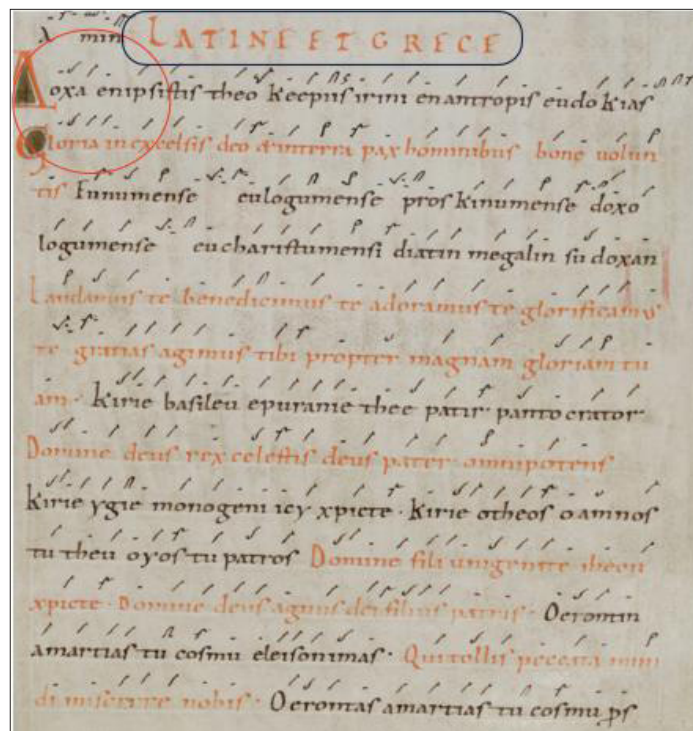 min LATINE ET GRECE
Δoxa enipsistis theo keepiis irini enantropis eudokias
Gloria inexcelsis deo & interra pax hominibus bone uolun
tis Eunumense eulogumense pros kinumense doxo
logumense eucharistumensi diatin megalin su doxan
Laudamus te benedicimus te adoramus te glorificamus
te gratias agimus tibi propter magnam gloriam tu
am. Kirie basileu epuranie thee patir panto crator
Domine deus rex celestis deus pater omnipotens
Kirie ygie monogeni icy xpicte. Kirie otheos o amnos
tu theu oyos tu patros Domine fili unigenite iheu
xpicte. Domine deus agnus dei filius patris. Oerontin
amartias tu cosmu eleison imas. Qui tollis peccata mun
di miserere nobis. Oerontas amartias tu cosmu ps